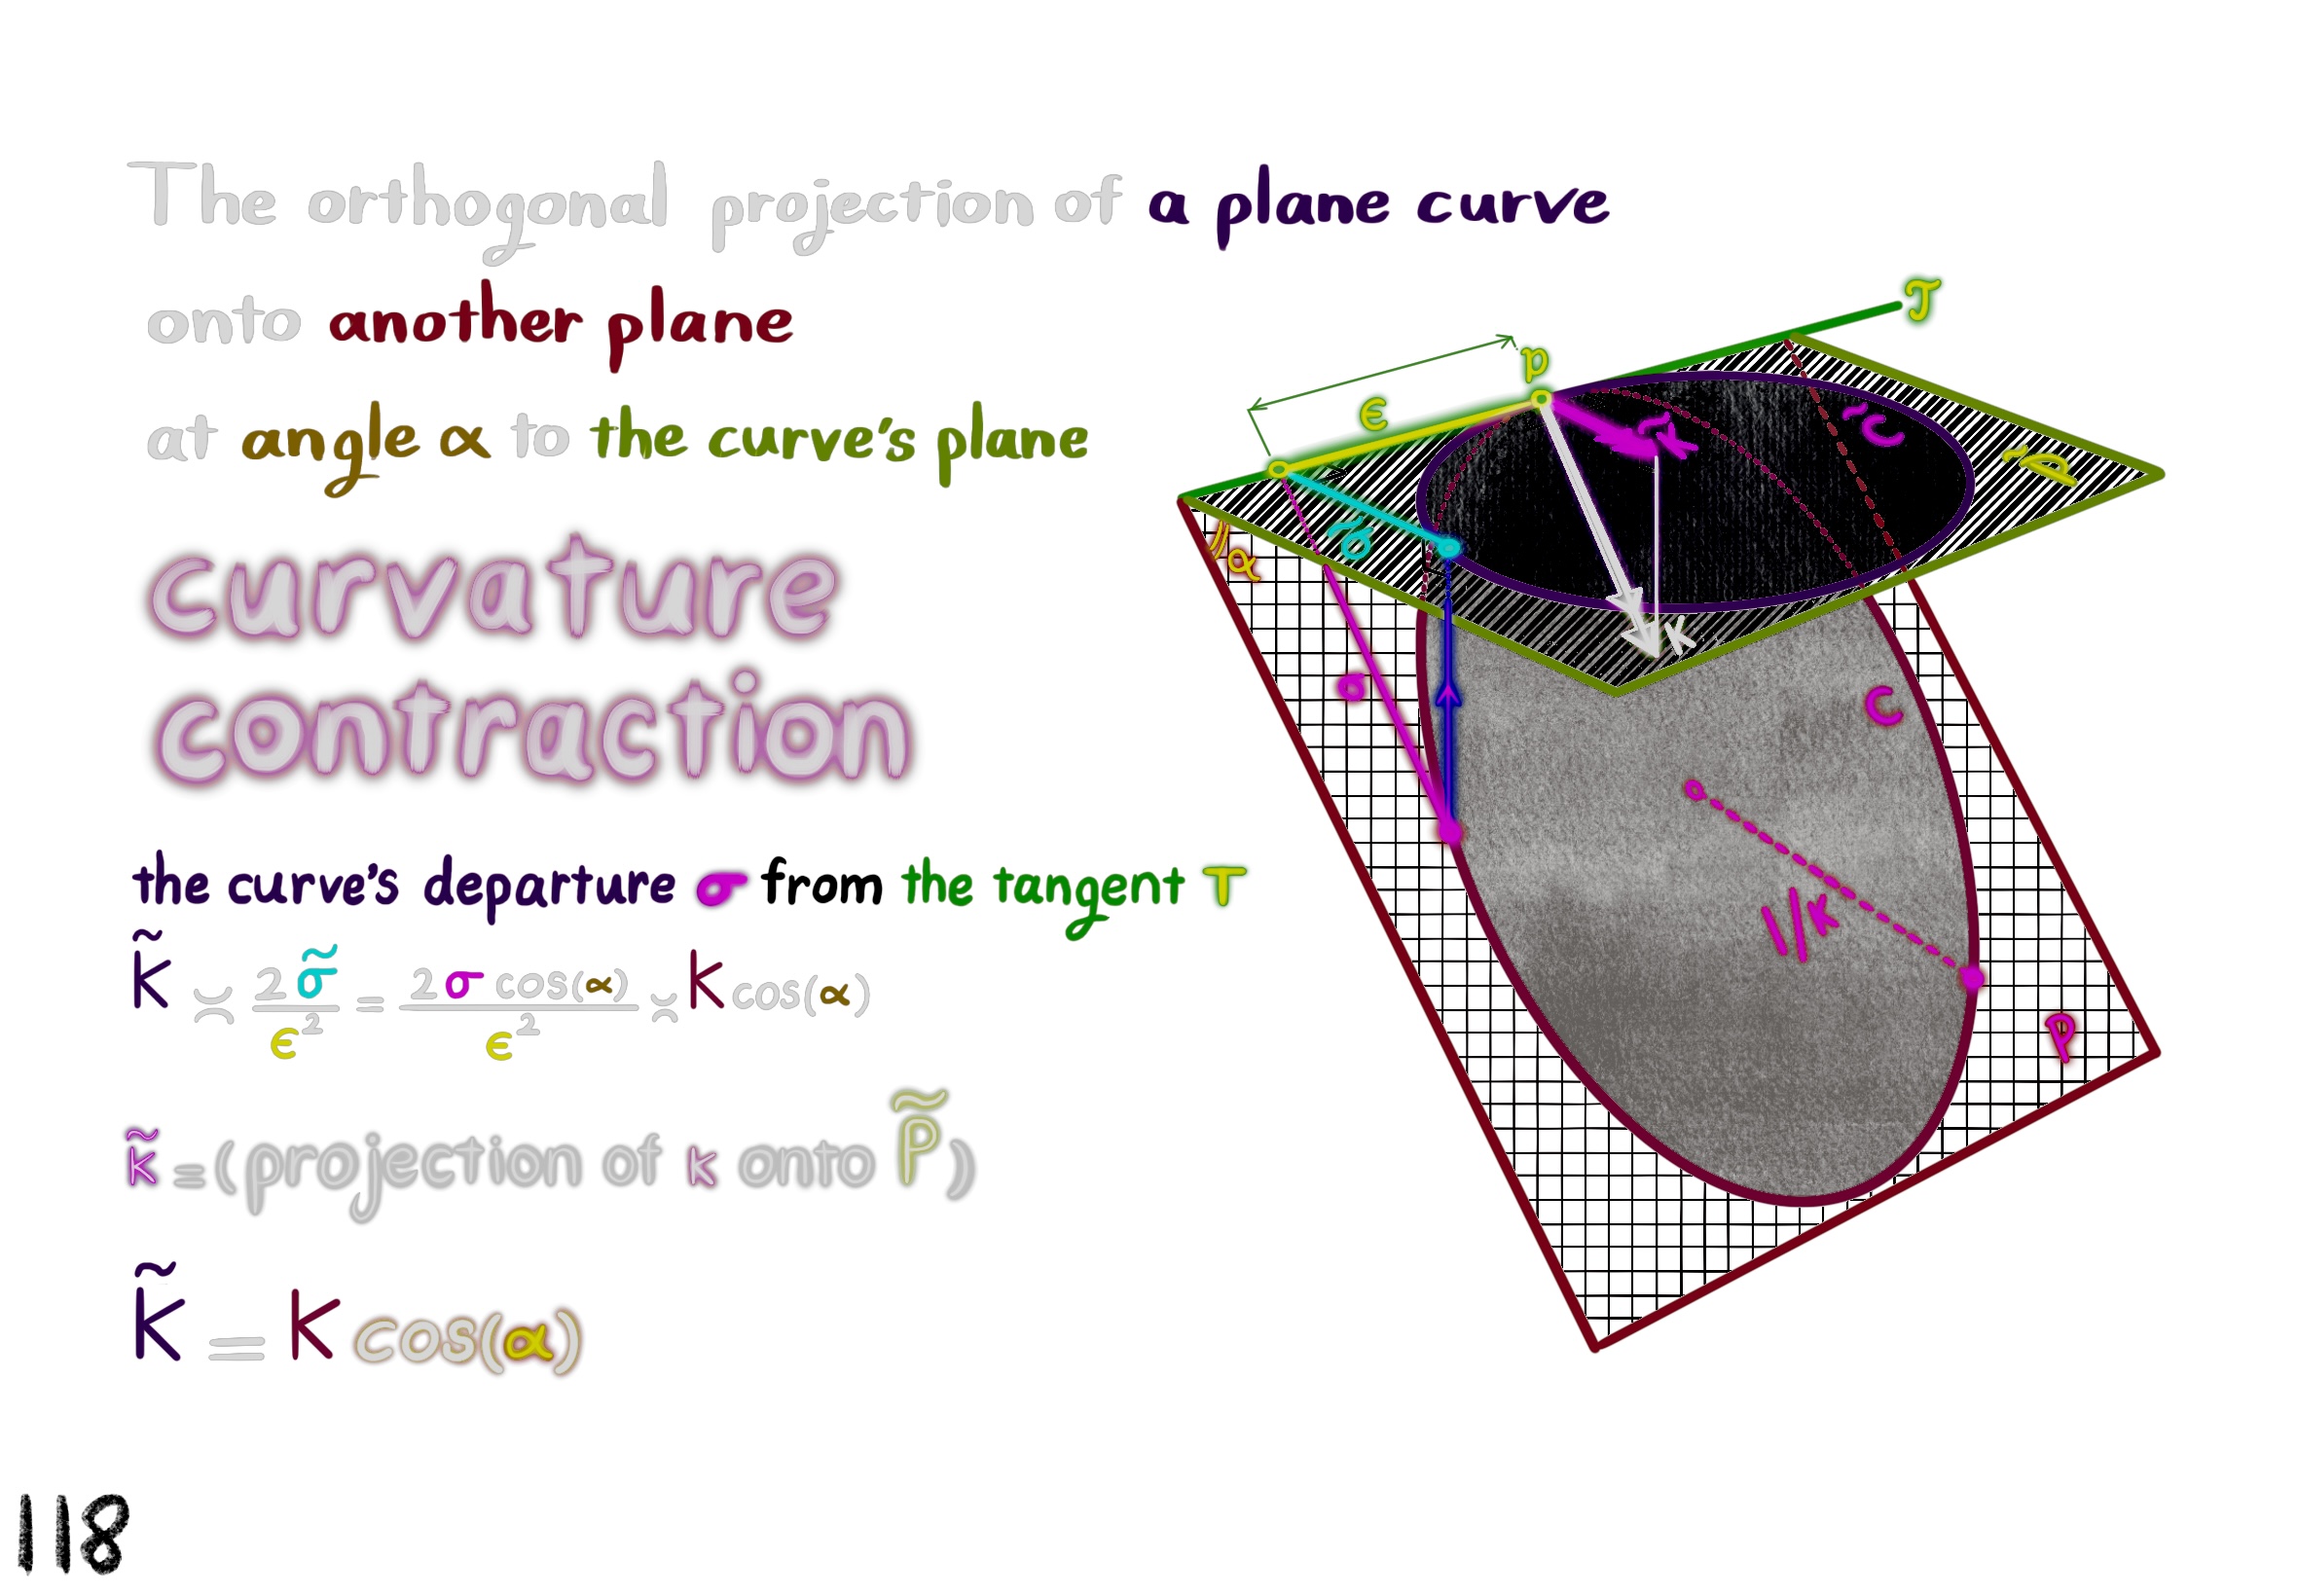 The orthogonal projection of a plane curve
onto another plane
at angle α to the curve's plane
curvature
contraction
the curve's departure σ from the tangent T
κ̃ ≍ 2 σ̃ / ϵ² = 2 σ cos(α) / ϵ² ≍ κ cos(α)
κ̃ = (projection of κ onto P̃)
κ̃ = κ cos(α)
T
p
ϵ
κ̃
C̃
P̃
σ̃
α
κ
σ
C
1/κ
P
118